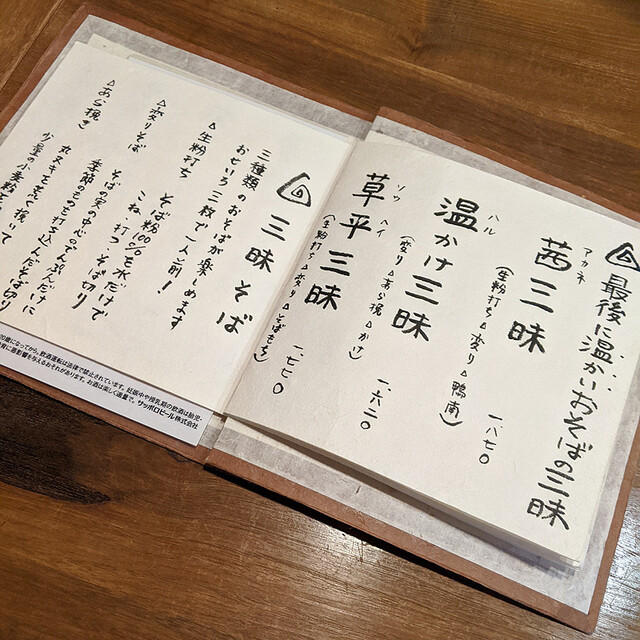 最後に温かいおそばの三昧
アカネ
茜三昧
(生粉打ち△変り△鴨南)
一、八七〇
ハル
温かけ三昧
(変り△あら挽△かけ)
一、六二〇
ソウヘイ
草平三昧
(生粉打ち△変り△そばもち)
一、七七〇
三昧そば
三種類のおそばが楽しめます
おせいろ二枚で一人前!
△生粉打ち
そば粉100%を水だけで
こね、打つ、そば切り
△変りそば
そばの実の中心のでん粉だけに
季節のものを打ち込んだそば切り
△あら挽き
少量の小麦粉を
20歳になってから。飲酒運転は法律で禁止されています。妊娠中や授乳期の飲酒は胎児・
発育に悪影響を与えるおそれがあります。お酒は楽しく適量で。サッポロビール株式会社